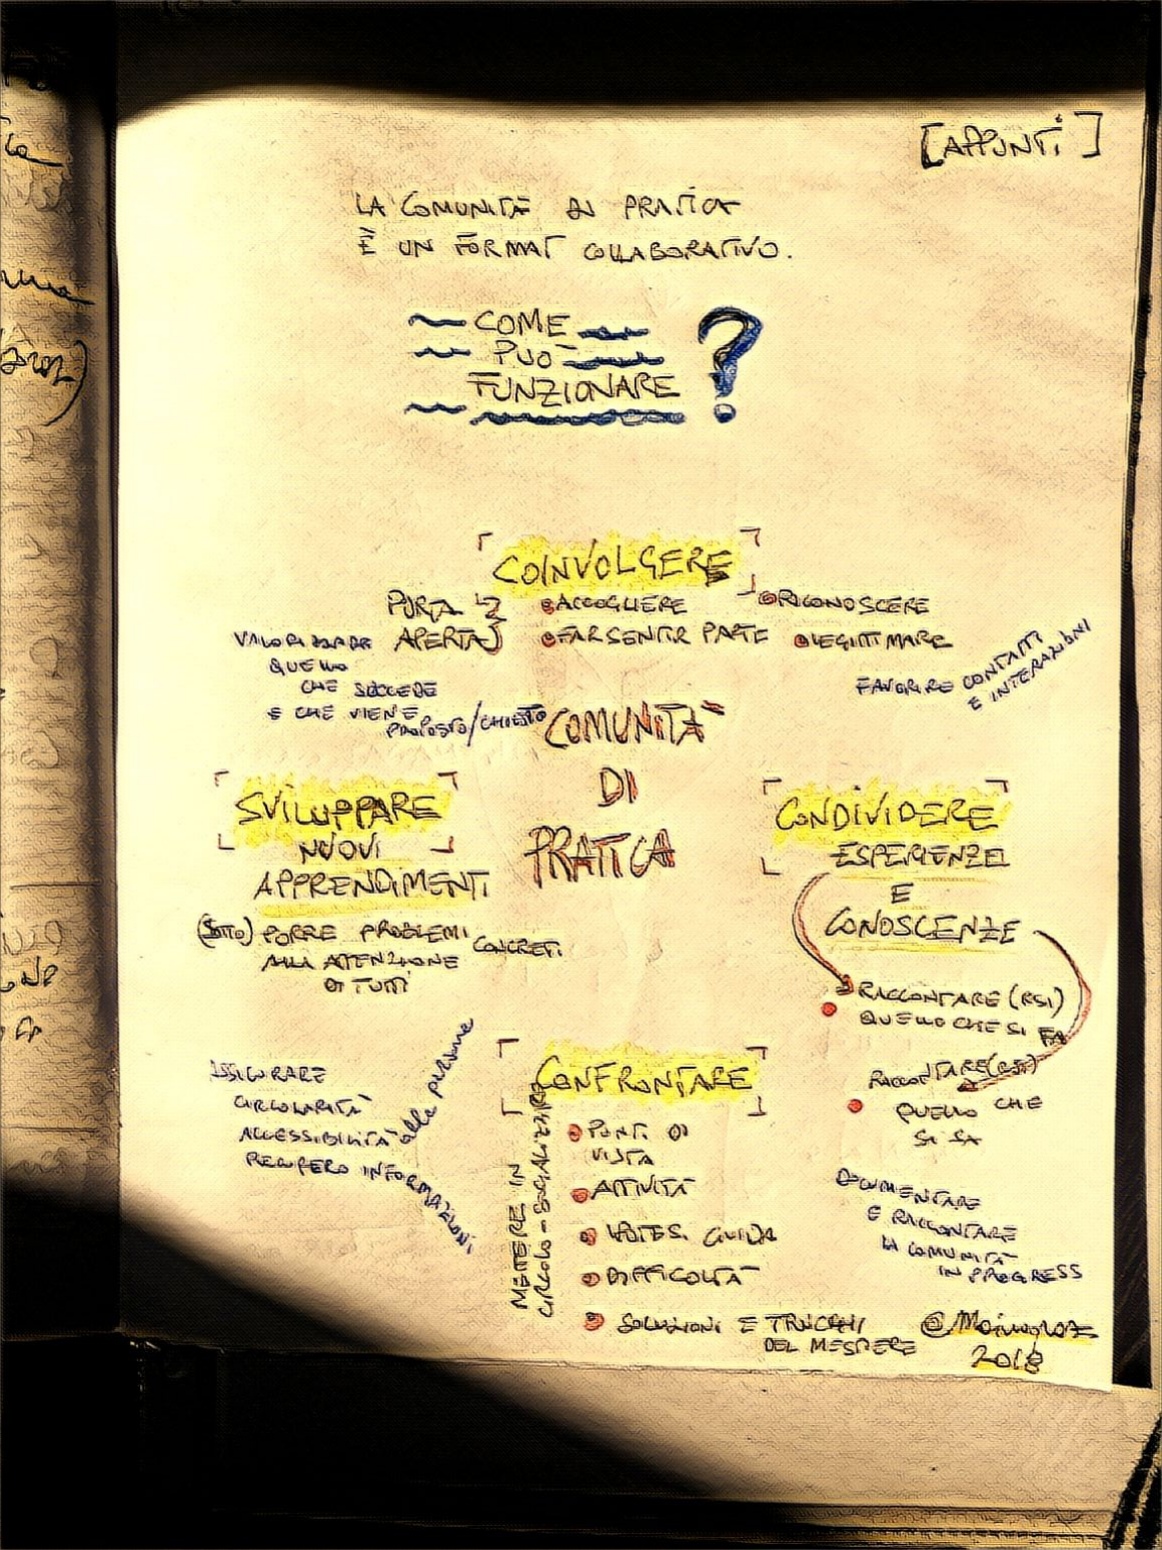 [APPUNTI]
LA COMUNITÀ DI PRATICA
È UN FORMAT COLLABORATIVO.
COME
PUÒ
FUNZIONARE
?
COINVOLGERE
PORTA
APERTA
ACCOGLIERE
FAR SENTIR PARTE
RICONOSCERE
LEGITTIMARE
VALORIZZARE
QUELLO
CHE SUCCEDE
E CHE VIENE
PROPOSTO/CHIESTO
FAVORIRE CONTATTI
E INTERAZIONI
COMUNITÀ
DI
PRATICA
SVILUPPARE
NUOVI
APPRENDIMENTI
(SOTTO) PORRE PROBLEMI CONCRETI
ALLA ATTENZIONE
DI TUTTI
CONDIVIDERE
ESPERIENZE
E
CONOSCENZE
RACCONTARE (RSI)
QUELLO CHE SI FA
RACCONTARE (RSI)
QUELLO CHE
SI SA
ASSICURARE
CIRCOLARITÀ
ACCESSIBILITÀ alle persone
RECUPERO INFORMAZIONI
CONFRONTARE
METTERE IN
CIRCOLO - SOCIALIZZARE
PUNTI DI
VISTA
ATTIVITÀ
IPOTESI GUIDA
DIFFICOLTÀ
SOLUZIONI E TRUCCHI
DEL MESTIERE
DOCUMENTARE
E RACCONTARE
LA COMUNITÀ
IN PROGRESS
2018